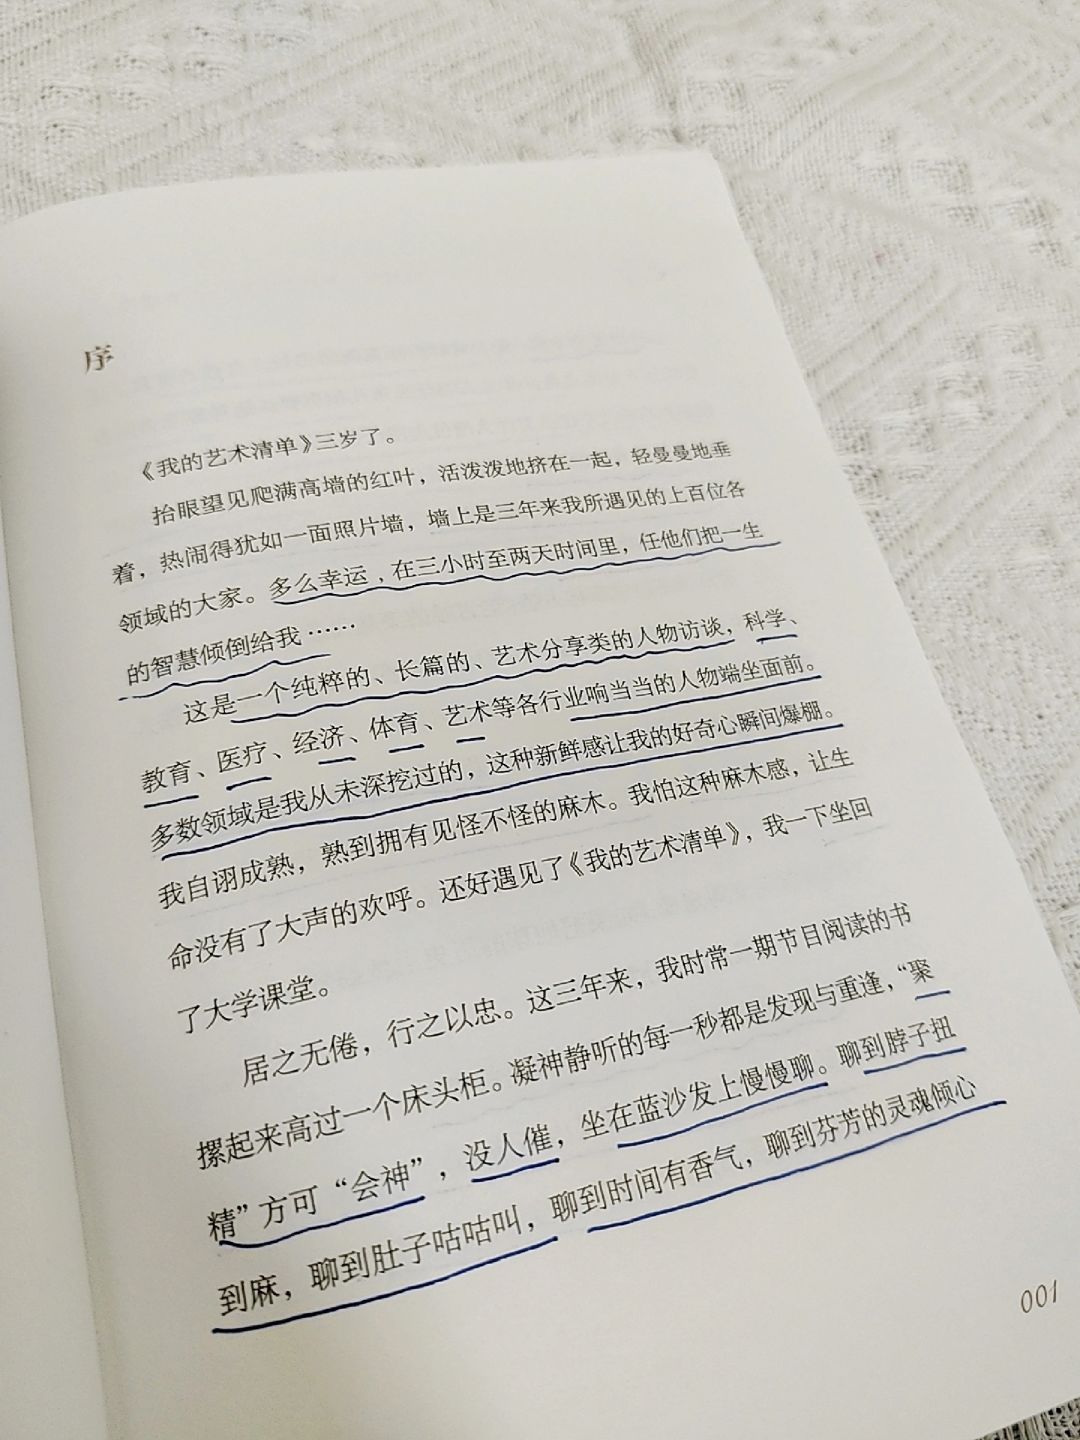 序
《我的艺术清单》三岁了。
抬眼望见爬满高墙的红叶，活泼泼地挤在一起，轻曼曼地垂
着，热闹得犹如一面照片墙，墙上是三年来我所遇见的上百位各
领域的大家。多么幸运，在三小时至两天时间里，任他们把一生
的智慧倾倒给我……
这是一个纯粹的、长篇的、艺术分享类的人物访谈，科学、
教育、医疗、经济、体育、艺术等各行业响当当的人物端坐面前。
多数领域是我从未深挖过的，这种新鲜感让我的好奇心瞬间爆棚。
我自诩成熟，熟到拥有见怪不怪的麻木。我怕这种麻木感，让生
命没有了大声的欢呼。还好遇见了《我的艺术清单》，我一下坐回
了大学课堂。
居之无倦，行之以忠。这三年来，我时常一期节目阅读的书
摞起来高过一个床头柜。凝神静听的每一秒都是发现与重逢，“聚
精”方可“会神”，没人催，坐在蓝沙发上慢慢聊。聊到脖子扭
到麻，聊到肚子咕咕叫，聊到时间有香气，聊到芬芳的灵魂倾心
001